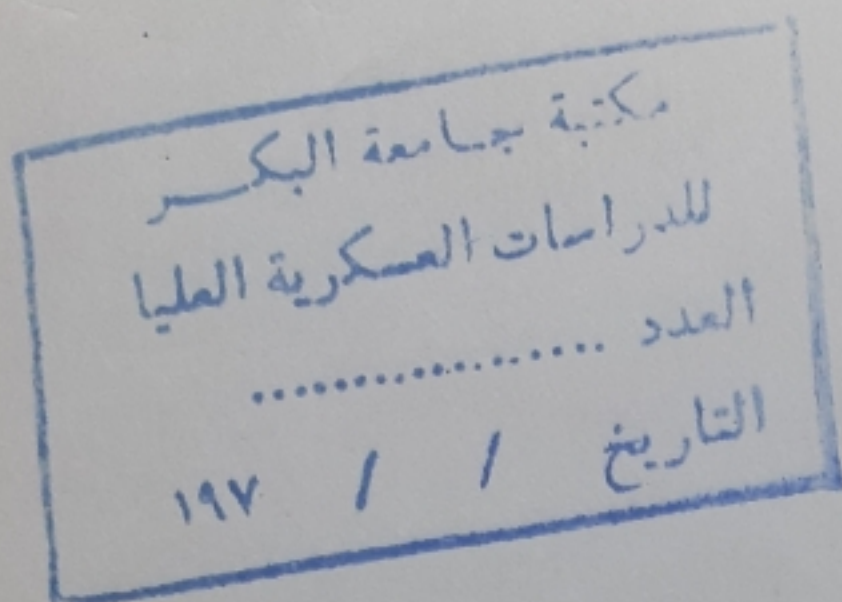 مكتبة جامعة البكر
للدراسات العسكرية العليا
العدد ..................
التاريخ / / ١٩٧